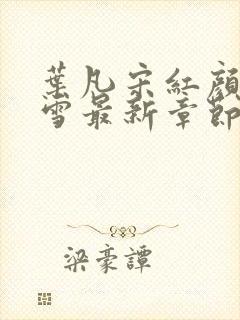 葉凡宋紅顔
雪最新章節
梁豪譚